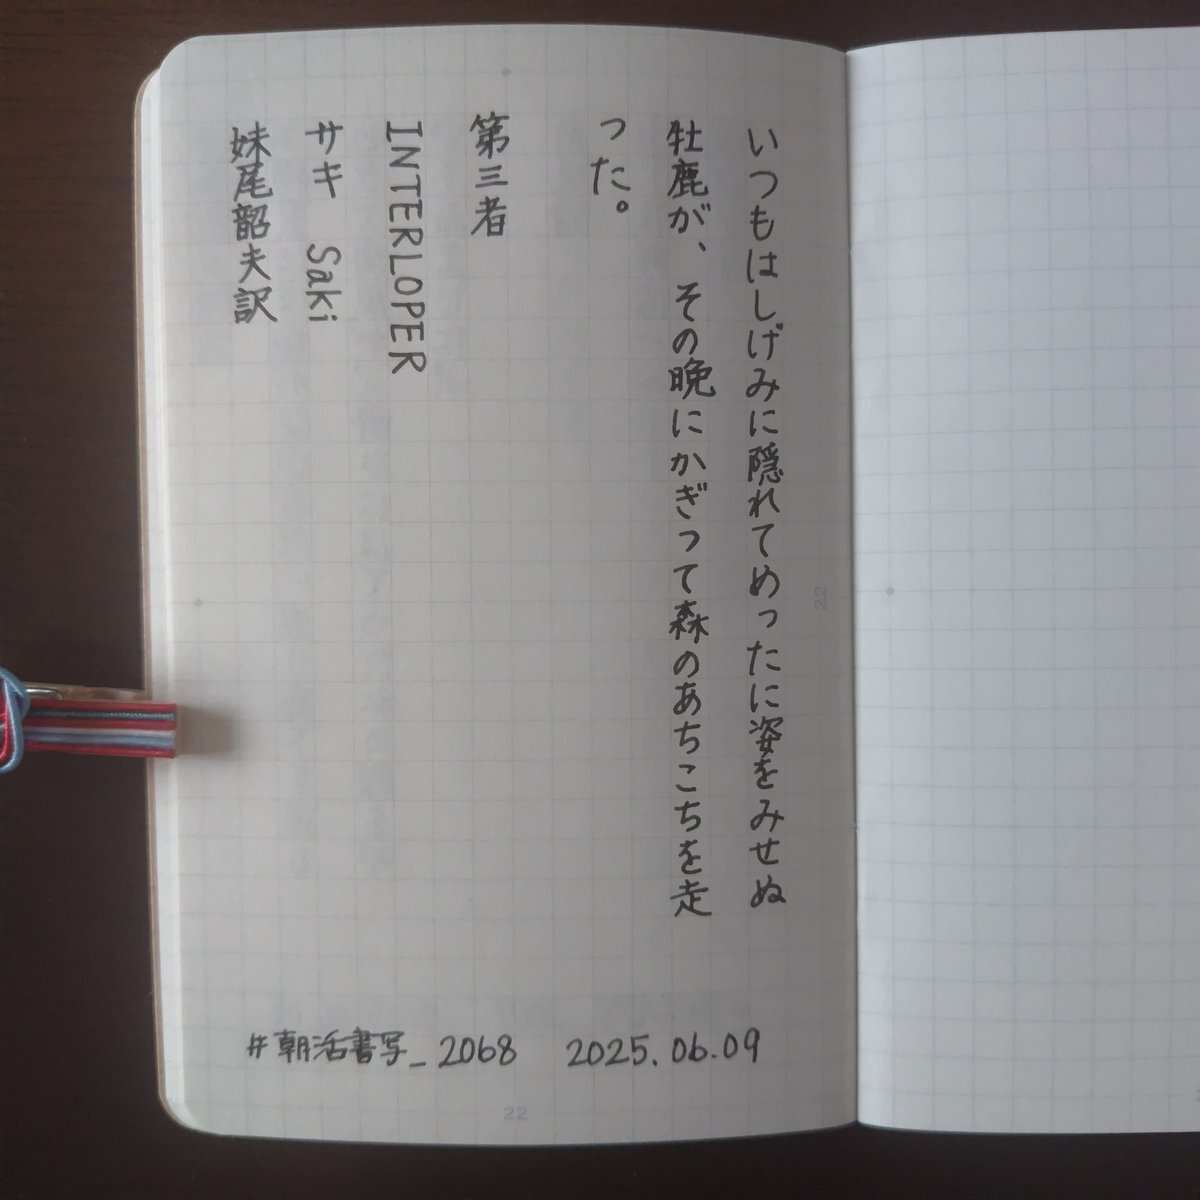 いつもはしげみに隠れてめったに姿をみせぬ
牡鹿が、その晩にかぎって森のあちこちを走
った。
第三者
INTERLOPER
サキ　Saki
妹尾韶夫訳
#朝活書写_2068　2025.06.09
22
22